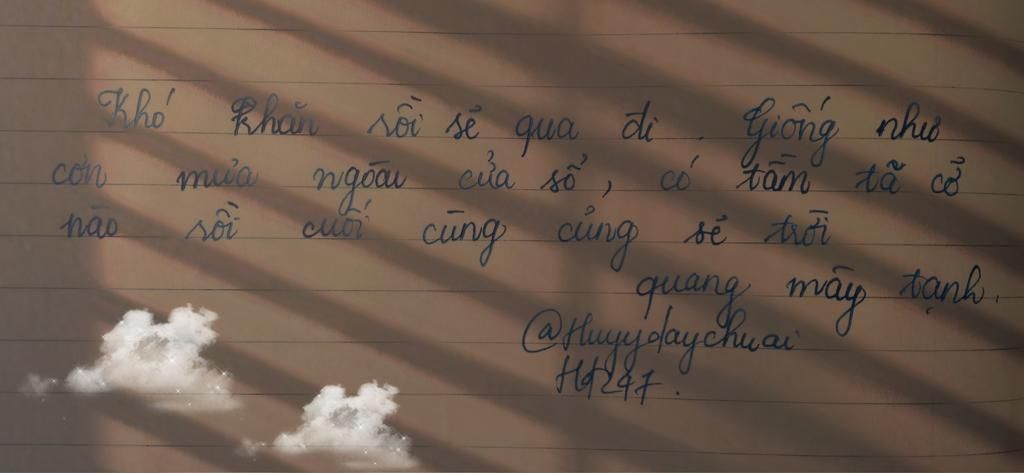 Khó khăn rồi sẽ qua đi. Giống như
cơn mưa ngoài cửa sổ, có tầm tã cỡ
nào rồi cuối cùng cũng sẽ trời
quang mây tạnh.
@Huyydaychuai